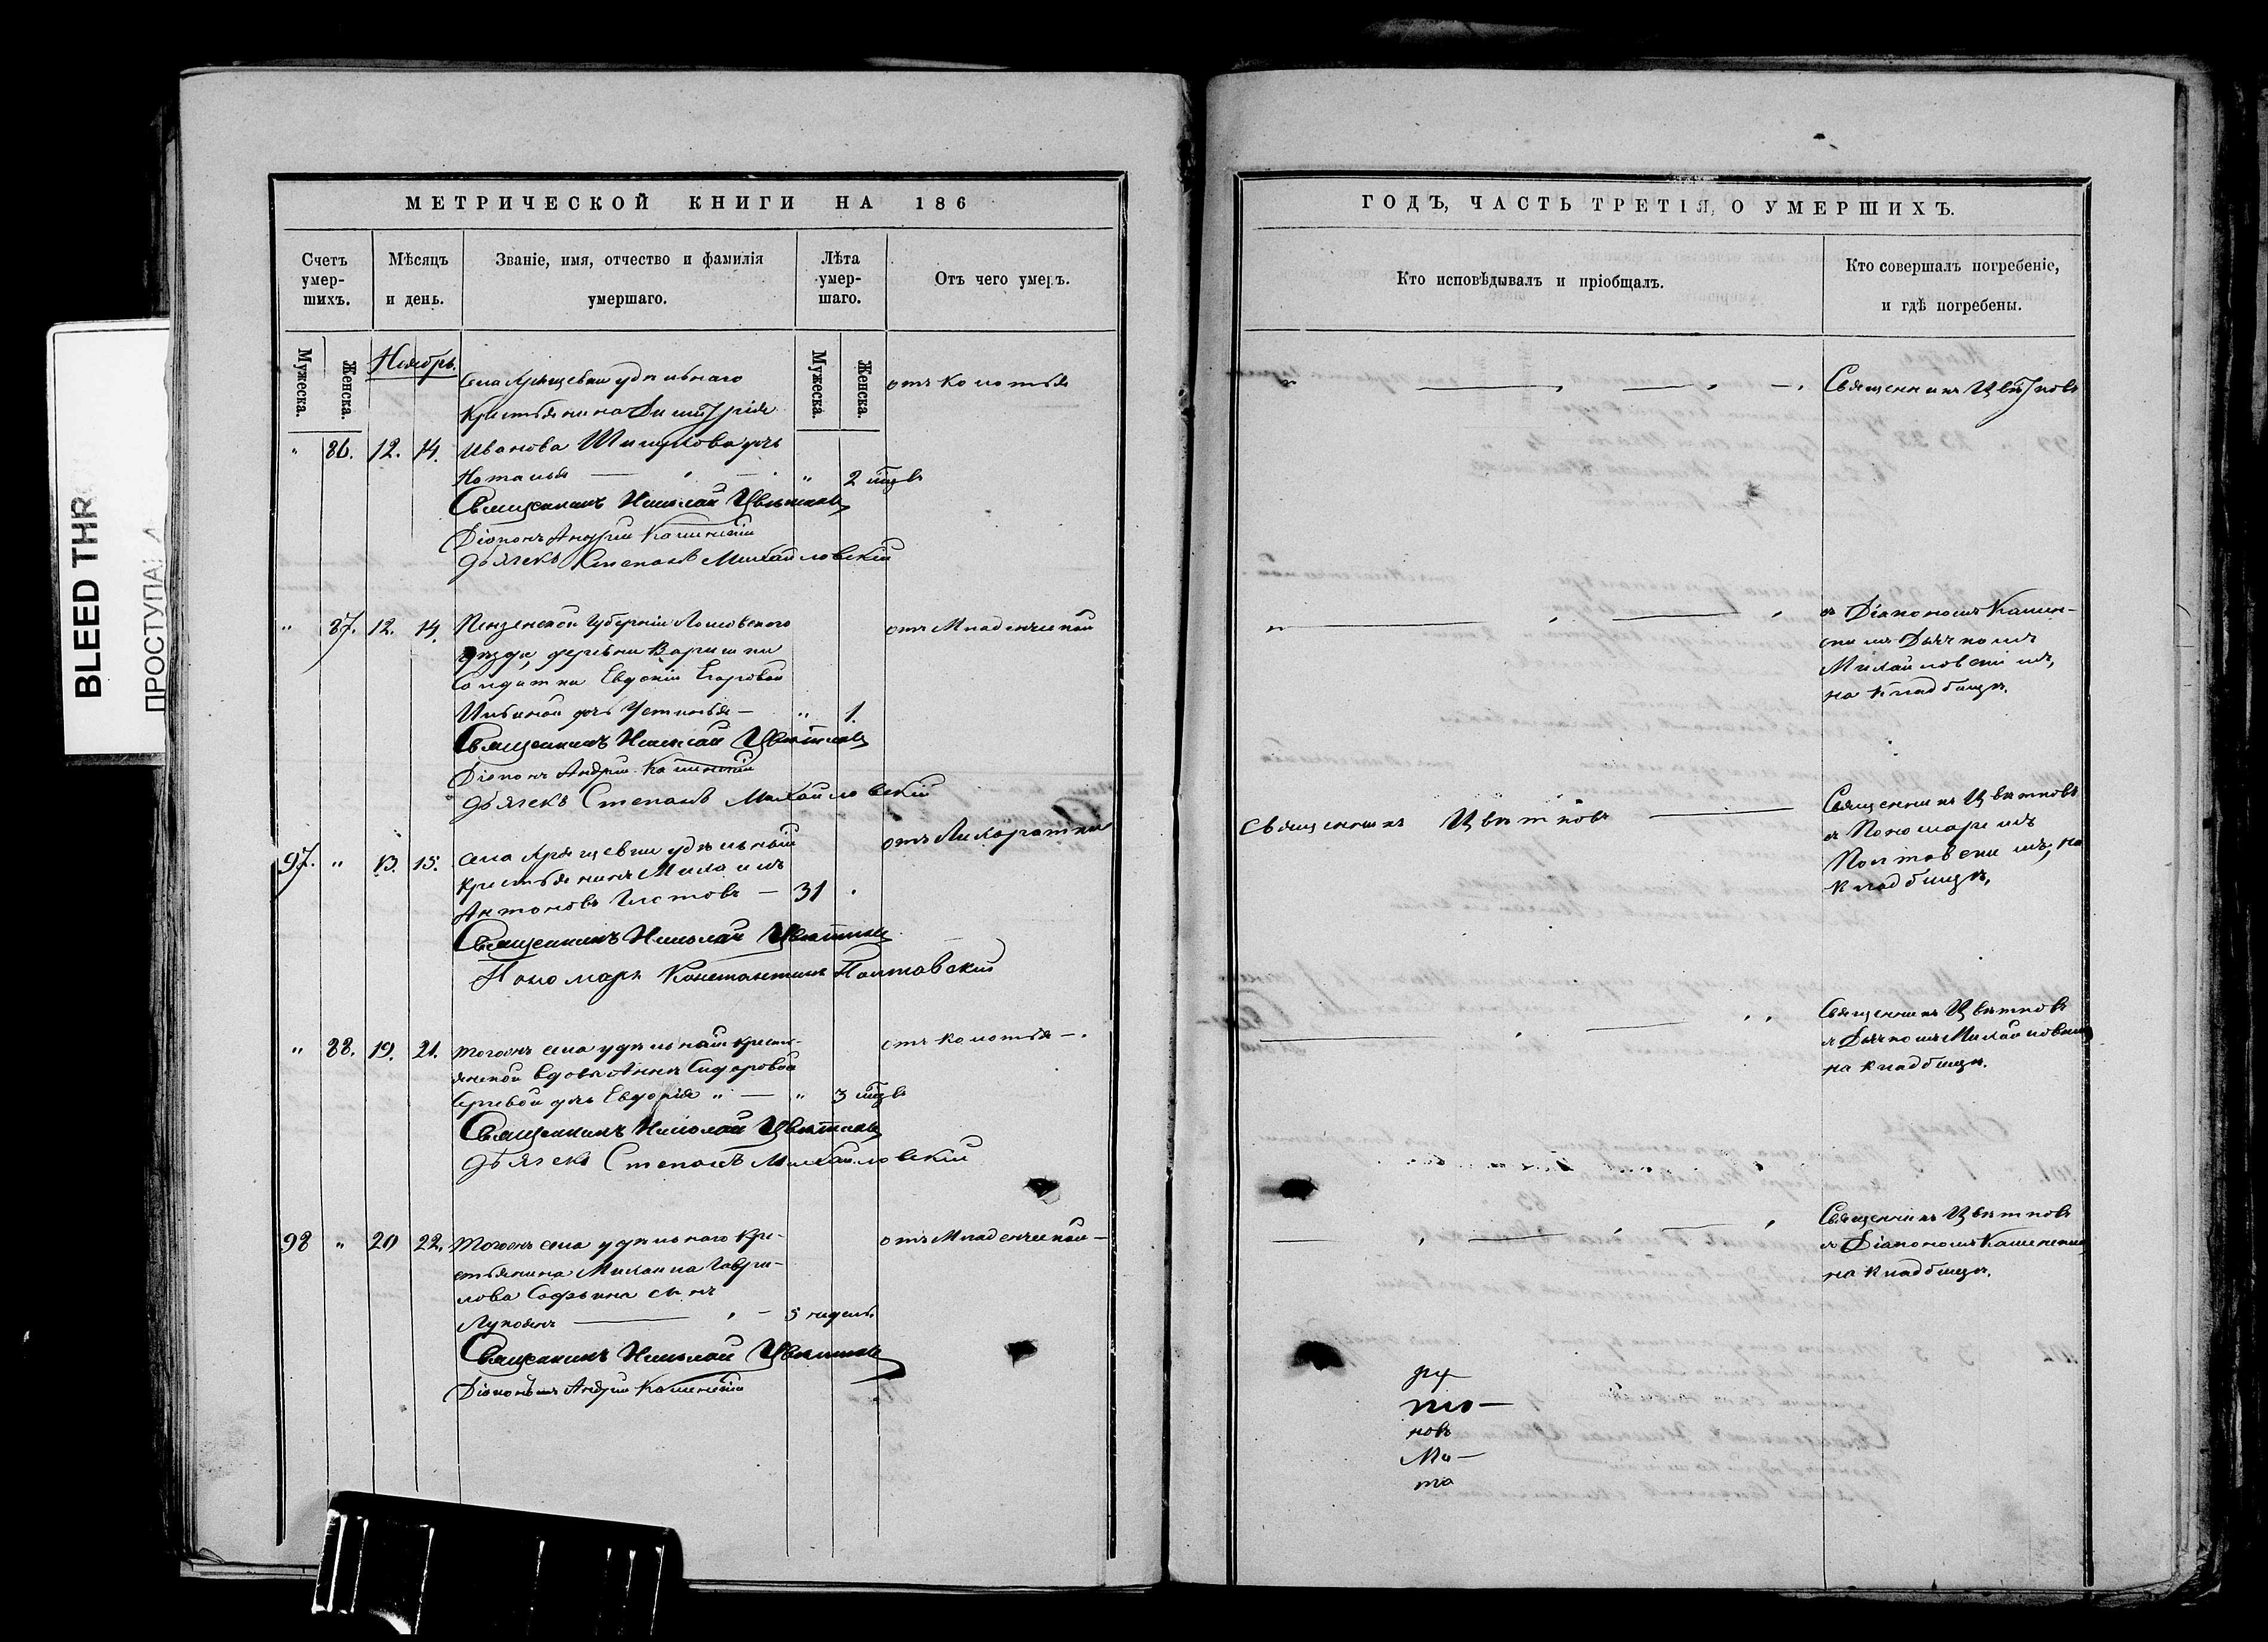 BLEED THR
ПРОСТУПА
МЕТРИЧЕСКОЙ КНИГИ НА 186
Счетъ умер-шихъ.
Мѣсяцъ и день.
Званіе, имя, отчество и фамилія умершаго.
Лѣта умер-шаго.
Отъ чего умеръ.
Мужеска.
Женска.
Мужеска.
Женска.
Ноябрь.
удѣльнаго
крестьянина Димитрія
Иванова дчь
Наталья
" 86. 12. 14. " 2 мцв
отъ колотья
Священникъ Николай Цвѣтковъ
Діаконъ Андрей Каменскій
Дьячекъ Степанъ Михайловскій
" 87. 12. 14. Пензенской Губерніи
уѣзда, деревни
Солдатки Евдокіи Егоровой
Ильиной дчь Устинья — " 1.
отъ Младенческой
Священникъ Николай Цвѣтковъ
Діаконъ Андрей Каменскій
Дьячекъ Степанъ Михайловскій
97. " 13. 15. села удѣльный
крестьянинъ
Антоновъ — 31
отъ Лихоратки
Священникъ Николай Цвѣтковъ
Пономарь Константинъ Полтавскій
" 88. 19. 21. тогожъ села удѣльной кресть-
янской вдовы Анны Сидоровой
дчь Евдокія " — " 3 мцв
отъ колотья —.
Священникъ Николай Цвѣтковъ
Дьячекъ Степанъ Михайловскій
98 " 20 22. тогожъ села удѣльнаго кре-
стьянина Михаила Гаври-
лова сынъ
Лукіянъ — 5 недель
отъ Младенческой —
Священникъ Николай Цвѣтковъ
Діаконъ Андрей Каменскій
ГОДЪ, ЧАСТЬ ТРЕТІЯ, О УМЕРШИХЪ.
Кто исповѣдывалъ и пріобщалъ.
Кто совершалъ погребеніе,
и гдѣ погребены.
Священникъ Цвѣтковъ
съ Діакономъ Камен-
скимъ Дьячкомъ
Михайловскимъ,
на кладбищѣ.
Священникъ Цвѣтковъ
Священникъ Цвѣтковъ
съ Пономаремъ
Полтавскимъ, на
кладбищѣ,
Священникъ Цвѣтковъ
съ Дьячкомъ Михайловским
на кладбищѣ.
Священникъ Цвѣтковъ
съ Діакономъ Каменским
на кладбищѣ.
новъ
Ми—
та